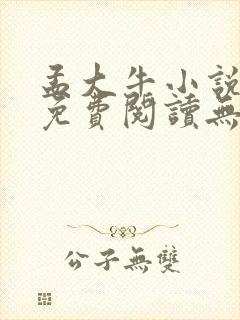 孟大牛小說
免費閱讀無
公子無雙